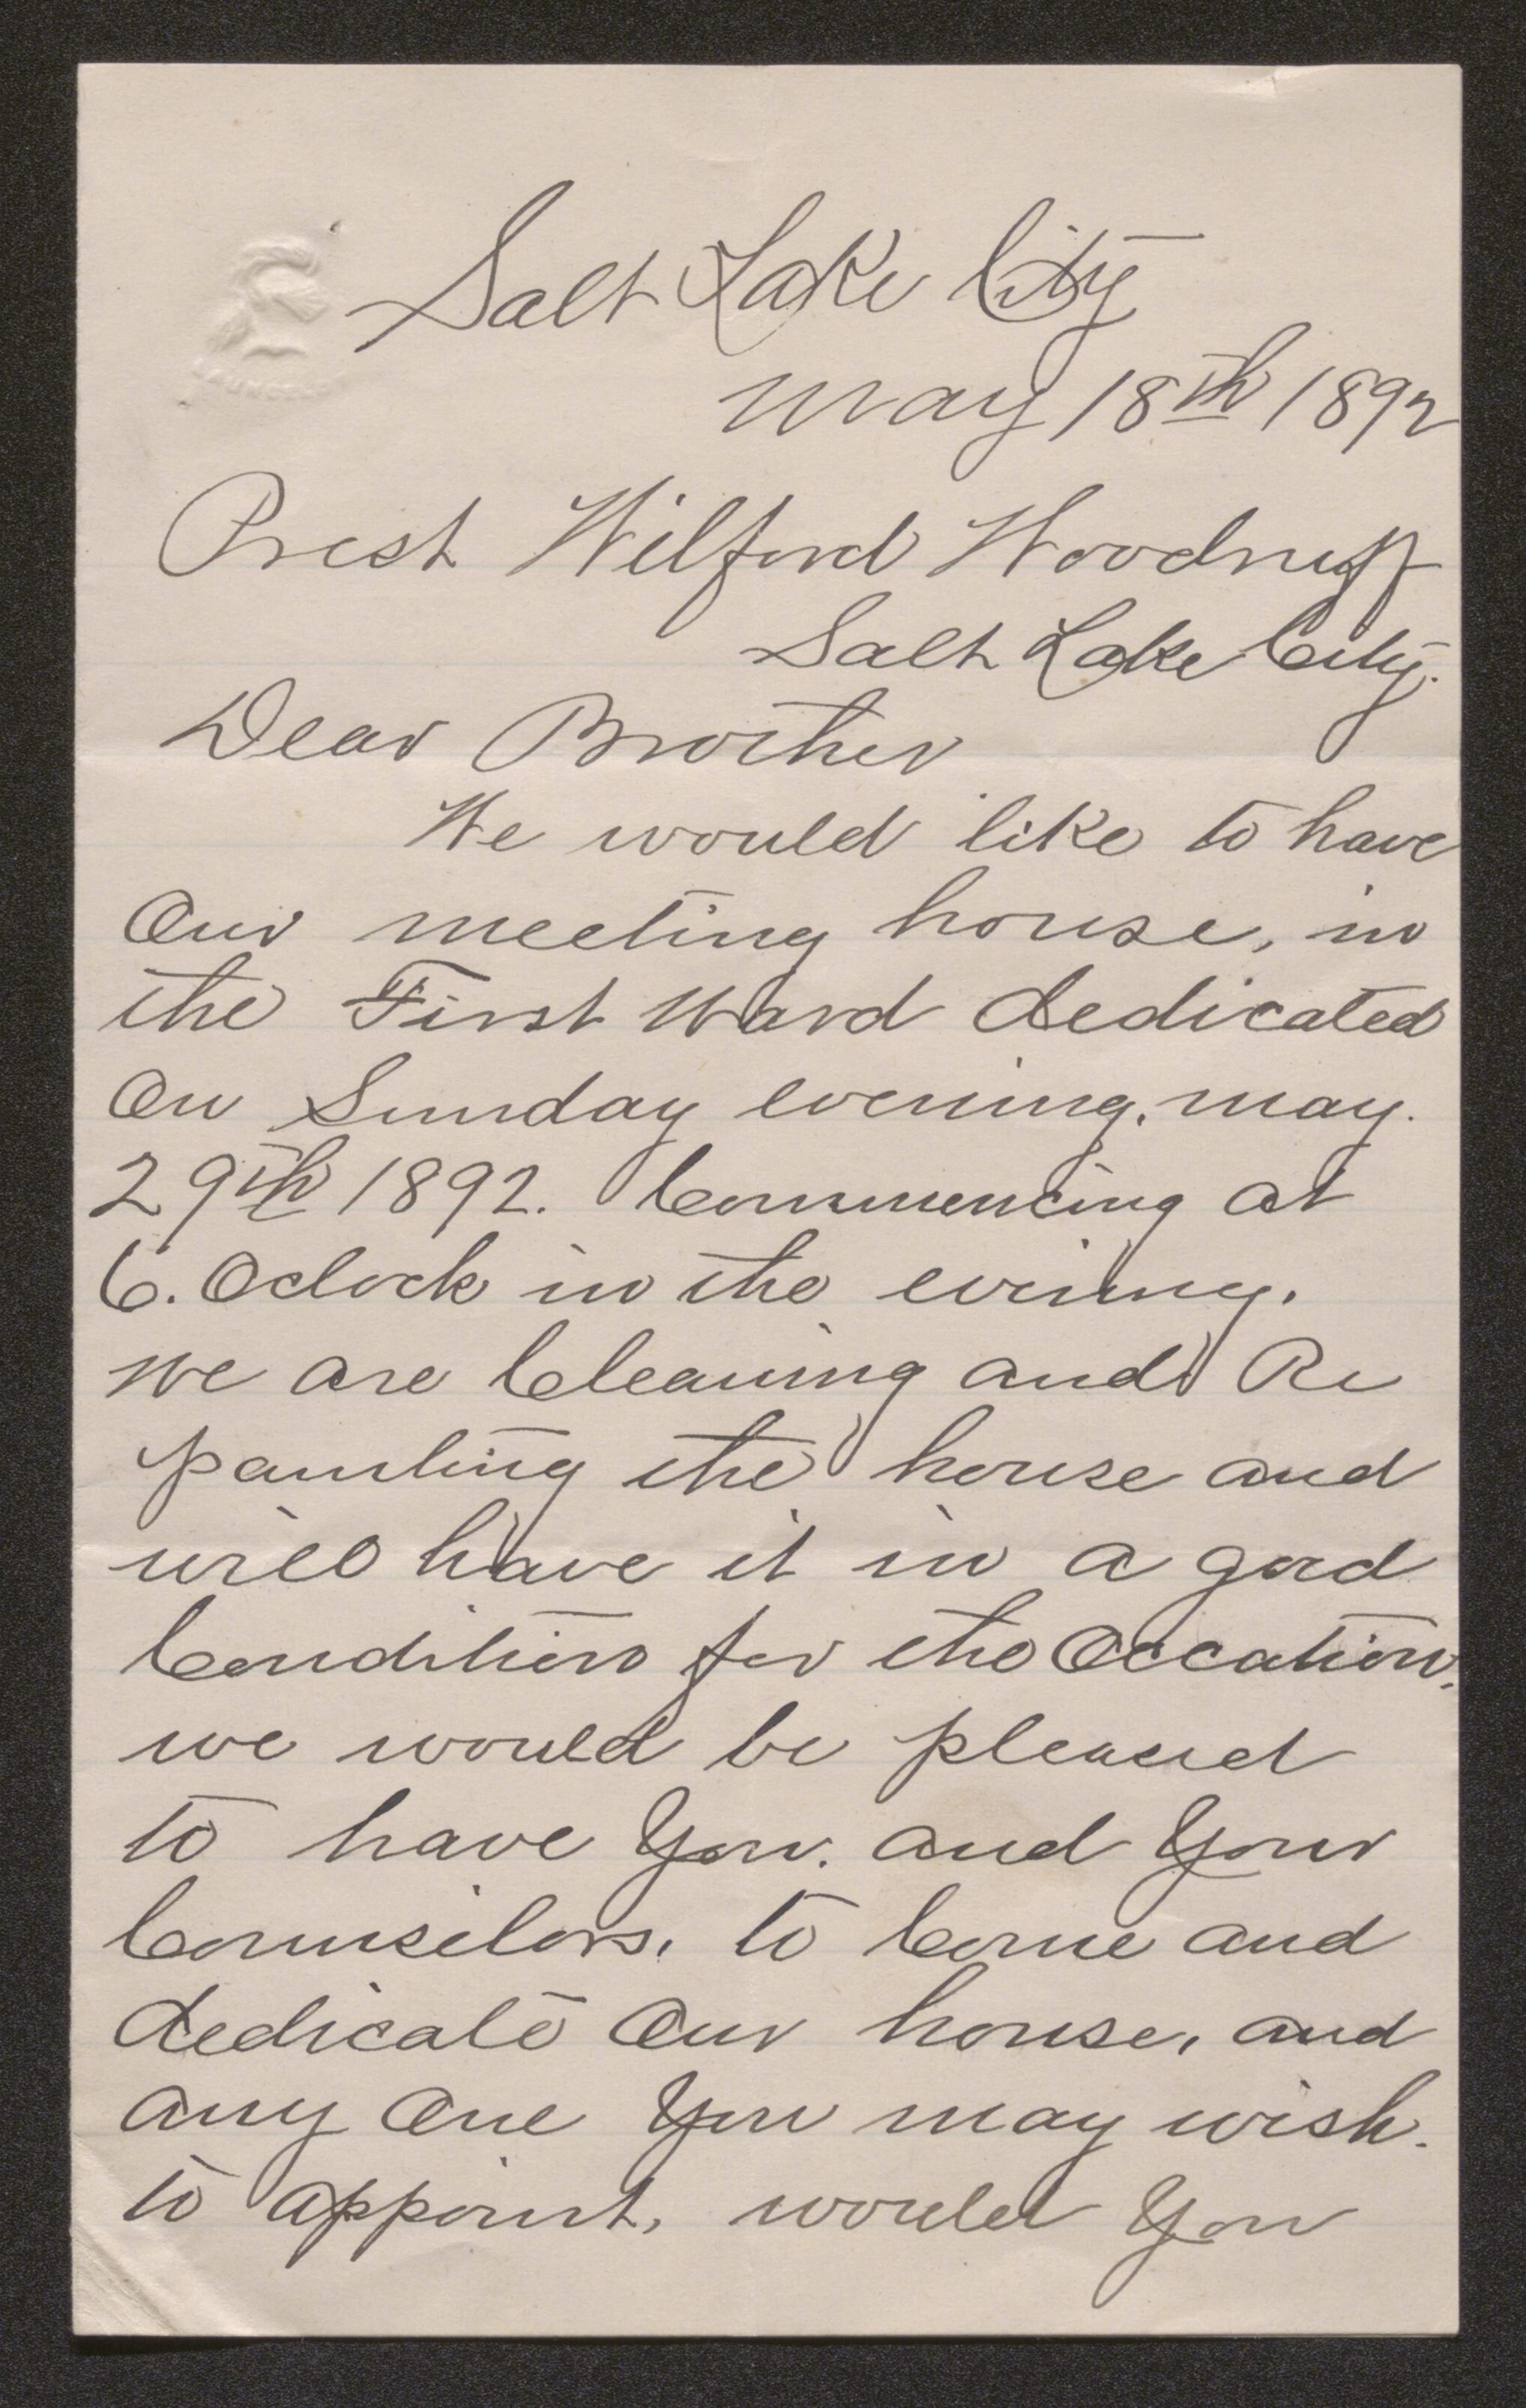 Salt Lake City
May 18th 1892
Prest Wilford Woodruff
Salt Lake City.
Dear Brother
We would like to have
Our meeting house, in
the First Ward dedicated
On Sunday evening, may.
29th 1892. Commencing at
6. Oclock in the evening.
We are Cleaning and Re
painting the house and
will have it in a good
Condition for the Occation.
we would be pleased
to have You. and Your
Counselors, to Come and
dedicate Our house, and
any One You may wish.
to appoint, would You